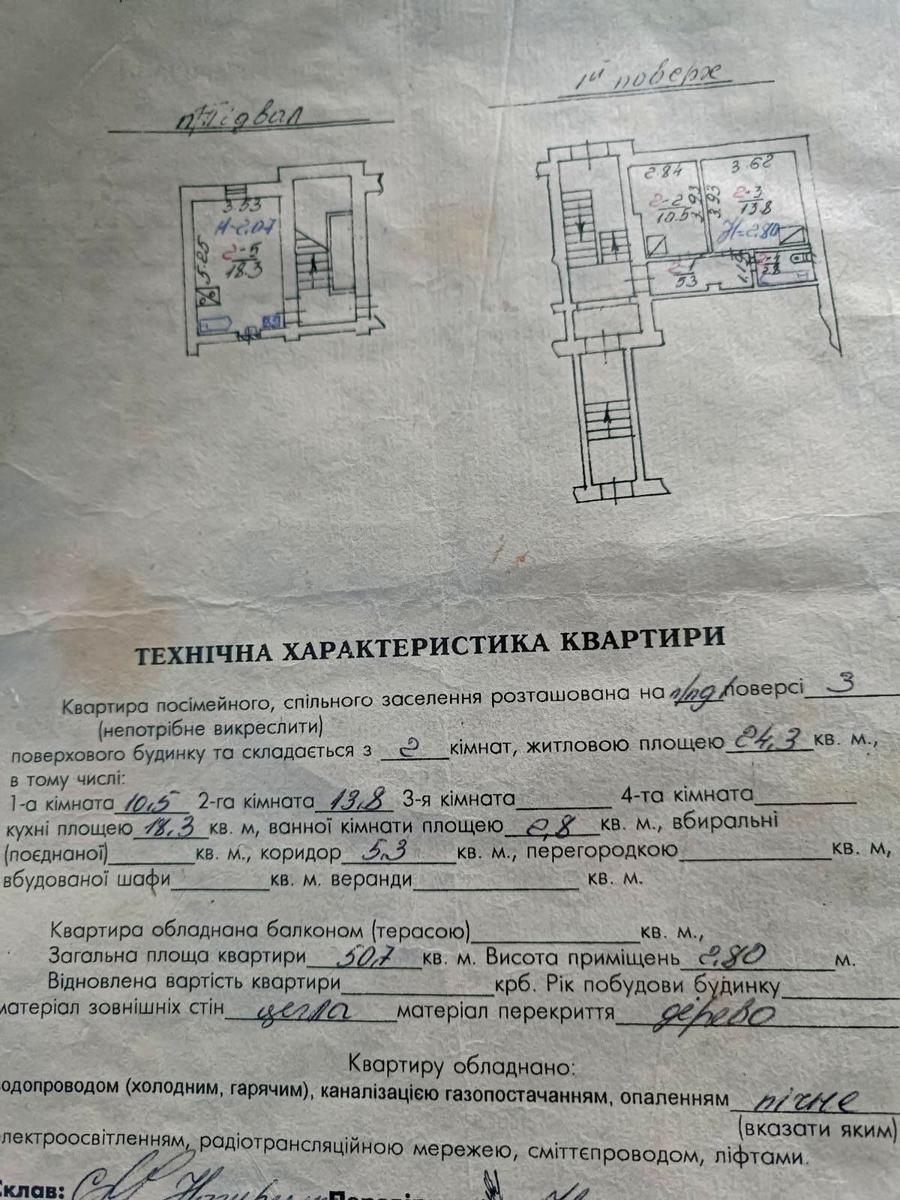 п/підвал
1й поверх
3.53
H-2.07
2-5
18.3
5.25
2.84
2-2
10.5
3.93
3.93
3.62
2-3
13.8
H=2.80
2-1
5.3
2-4
2.8
ТЕХНІЧНА ХАРАКТЕРИСТИКА КВАРТИРИ
Квартира посімейного, спільного заселення розташована на п/пд 1 поверсі 3
(непотрібне викреслити)
поверхового будинку та складається з 2 кімнат, житловою площею 24,3 кв. м.,
в тому числі:
1-а кімната 10,5 2-га кімната 13,8 3-я кімната 4-та кімната
кухні площею 18.3 кв. м, ванної кімнати площею 2,8 кв. м., вбиральні
(поєднаної) кв. м., коридор 5.3 кв. м., перегородкою кв. м,
вбудованої шафи кв. м. веранди кв. м.
Квартира обладнана балконом (терасою) кв. м.,
Загальна площа квартири 50,7 кв. м. Висота приміщень 2,80 м.
Відновлена вартість квартири крб. Рік побудови будинку
матеріал зовнішніх стін цегла матеріал перекриття дерево
Квартиру обладнано:
водопроводом (холодним, гарячим), каналізацією газопостачанням, опаленням пічне
(вказати яким)
електроосвітленням, радіотрансляційною мережею, сміттєпроводом, ліфтами.
Склав: